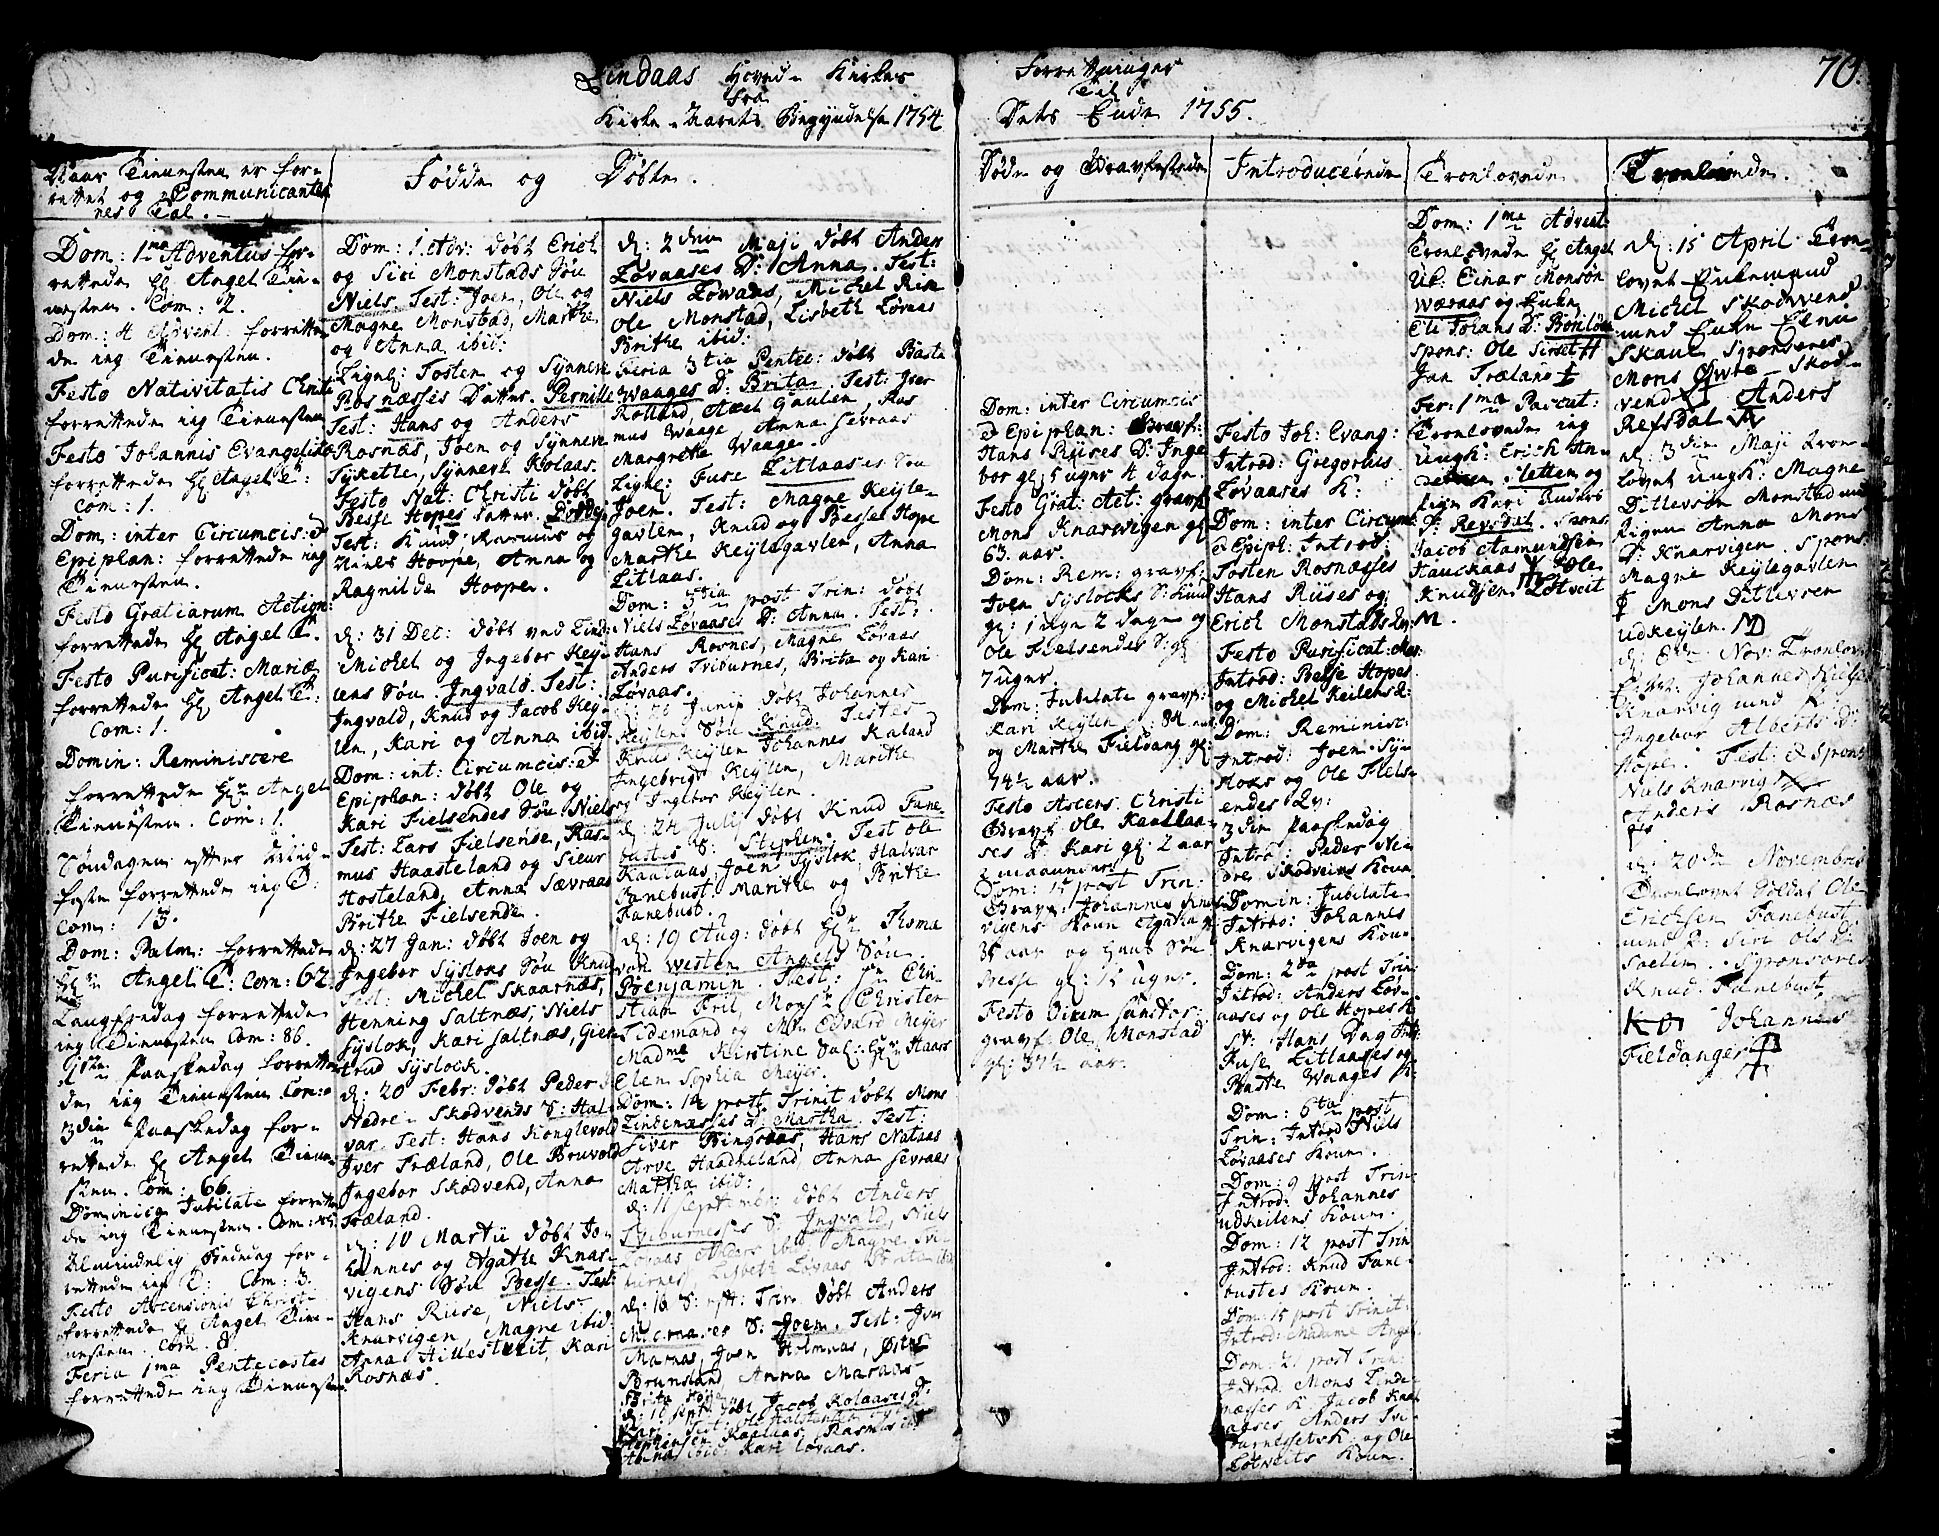 Lindaas Hoved Kirkes Forretninger
70.
Fra Til
Kirke-Aarets Begyndelse 1754 Dets Ende 1755.
Naar Tienesten er for-
rettet og Communicanter
nes Tal.
Dom: 1ma Adventus for-
rettede Hr Angel Tie-
nesten. Com: 2.
Dom: 4 Advent. forrette-
de ieg Tienesten.
Festo Nativitatis Christi
forrettede ieg Tienesten
Festo Johannis Evangelistæ
forrettede Hr Angel T:
Com: 1.
Dom: inter Circumcis: &
Epiphan: forrettede ieg
Tienesten.
Festo Gratiarum Action:
forrettede Hr Angel T.
Festo Purificat: Mariæ
forrettede Hr Angel T:
Com: 1.
Domin: Reminiscere
forrettede Hr Angel
Tienesten. Com: 1.
forrettede ieg T:
Com: 13.
Dom: Palm: forrettede
Hr Angel T: Com: 62.
Langfredag forrettede
ieg Tienesten Com: 86.
Paaskedag forrette-
de ieg Tienesten Com:
3die Paaskedag for-
rettede Hr Angel Tiene-
sten. Com: 66.
Dominica Jubilate forrette-
de ieg Tienesten. Com:
Almindelig Bededag for-
rettede ieg T: Com: 3.
Festo Ascensionis Christi
forrettede Hr Angel Tie-
nesten. Com: 8.
Feria 1ma Pentecostes
forrettede ieg Tienesten
Fødde og Døbte.
Dom: 1. Adv: døbt Erich
og Siri Monstads Søn
Niels. Test: Joen, Ole og
Magne Monstad, Marthe
og Anna ibid:
Ligel: Tosten og Synneve
Rosnæsses Datter. Pernille
Test: Hans og Anders
Rosnæs, Joen og Synneve
Sykette, Synneve Kolaas.
Festo Nat: Christi døbt
Besse Hopes Datter.
Test: Knud, Rasmus og
Niels Hoope, Anna og
Ragnilde Hoope.
d: 31 Dec: døbt ved Lind:
Michel og Ingebor Key-
lens Søn. Ingvald. Test:
Ingvald, Knud og Jacob Key-
len, Kari og Anna ibid.
Dom: int: Circumcis: &
Epiphan: døbt Ole og
Kari Fielsendes Søn Niels
Test: Lars Fielsende, Ras-
mus Haasteland og Sieur
Hosteland, Anna Sævraas
Brithe Fielsende.
d: 27 Jan: døbt Joen og
Ingebor Syslons Søn Knud
Test: Michel Skaarnæs,
Henning Saltnæs, Niels
Syslok, Kari Saltnæs, Gier-
trud Syslock.
d: 20 Febr: døbt Peder
Nedre-Skodvends S: Hal-
var. Test: Hans Konglevold
Iver Træland, Ole Bruvold
Ingebor Skodvend, Anna
Træland.
d: 10 Martii døbt Jo-
hannes og Agathe Knar-
vigens Søn Besse. Test:
Hans Riise, Niels
Knarvigen, Magne ibid:
Anna Hillestveit, Kari
Rosnæs.
d: 2den Maji døbt Anders
Løvaases D: Anna. Test:
Niels Løvaas, Michel
Ole Monstad, Lisbeth Løvaas
Brithe ibid:
Feria 3tia Pentec: døbt Baste
Waages D: Brita. Test: Iver
Rolland, Axel Gaulen, Ras
mus Waage, Anna Sevraas
Margrethe Waage.
Ligel: Fuse Litlaases Søn
Joen. Test: Magne Keyle-
gavlen, Knud og Besse Hope
Marthe Keylegavlen, Anna
Litlaas.
Dom: 3tia post Trin: døbt
Niels Løvaases D: Anna. Test:
Hans Rosnes, Magne Løvaas
Anders Triburnes, Brita og Kari
Løvaas.
Junij døbt Johannes
Keylens Søn Knud. Testes
Knud Keylen Johannes Kaland
Ingebrigt Keylen, Marithe
og Ingebor Keylen.
d: 24 Julij døbt Knud Fane-
bustes S: Stephen. Test Ole
Kaalaas, Joen Syslok, Halvar
Fanebust, Marithe og Brithe
Fanebust.
d: 19 Aug: døbt Hr Thoma
von Westen Angels Søn
Benjamin. Test: Hr Chri-
stian Friis, Monsr Christen
Tidemand og Mr Edvard Meyer
Madme Kirstine Sal: Hr Haars
Elen Sophia Meyer.
Dom: 14 post Trinit døbt Mons
Lindenæsses D. Martha. Test:
Siver Bingstaas, Hans Nataas
Arve Haadheland, Anna Sevraas
Martha ibid:
d: 11 Septembr døbt Anders
Triburnesses S: Ingvald. Niels
Løvaas Anders ibid Magne Tri-
burnes, Lisbeth Løvaas Brita ibid
d: 16 S: eft: Trin døbt Anders
Marnases S: Joen. Test: Iver
Marnas, Joen Holmnas,
Brunsland Anna Maraas
døbt Jacob Kolaases D.
Kari
Stephensen Kaalaas, Rasmus ibid
Anna ibid: Kari Løvaas.
Døde og Gravfestede
Dom: inter Circumcis
& Epiphan: Gravf:
Hans Riises D: Inge
bor gl: 5 uger 4 dage.
Festo Grat: Act: gravf
Mons Knarwigen gl
63. aar.
Dom: Rem: gravf:
Joen Syslocks S: Knud
gl: 1 uge 2 dage og
Ole Fielsendes S: gl
7 uger.
Dom: Jubilate gravf:
Kari Keylen gl: 84 aar
og Marthe Fieldang gl:
74½ aar.
Festo Ascens. Christi
Gravf Ole Kaallaa-
ses D: Kari gl: 2 aar
2 maaneder.
Dom: 15 post Trin:
Gravf: Johannes Knar-
vigens Koun Agatha gl:
35 aar og hans Søn
Besse gl: 15 uger.
Festo Omnium Sanctor:
gravf: Ole Monstad
gl: 37½ aar.
Introducerede
Festo Joh: Evang:
Introd: Gregorius
Løvaases K:
Dom: inter Circum
& Epiph: Introd:
Tosten Rosnæsses
Hans Riises og
Erich Monstads Qv:
Festo Purificat: Mar:
Introd: Besse Hopes
og Michel Keilens K:
Dom: Reminisc:
Introd: Joen Sy-
sloks og Ole Fiels-
endes Qv:
3die Paaskedag
Introd: Peder Ne-
dre Skodveins Koun
Domin: Jubilate
Introd: Johannes
Knarvigens Kou-
Dom: 2da post Trin:
Introd: Anders Løv-
aases og Ole Hopes K:
St: Hans Dag Int:
Fuse Litlaases og
Baste Waages K:
Dom: 6ta post
Trin: Introd Niels
Løvaases Koun.
Dom: 9 post Trin:
Introd: Johannes
udkeilens Koun.
Dom: 12 post Trin
Introd: Knud Fane-
bustes Koun.
Dom: 15 post Trinit:
Introd: Madame Angel
Dom: 21 post Trin:
Introd Mons Linde-
næsses K. Jacob Kaa
laases, Anders Tri-
burnesses K. og Ole
Lotveits Koun.
Troelovede
Dom: 1ma Advent:
Troelovede Hr Angel
Uk: Einar Monsøn
Wæraas og Enke
Eli Johans D: Børilden
Spons: Ole Sirset H
Jan Træland
Fer: 1ma Pascat:
Troelovede ieg
Ungk: Erich An-
dersen Letten og
Pigen Kari Anders
D: Refsdal. Spons
Jacob Aamundsen
Hauckaas Ole
Knudsen Lotveit
M.
d: 15 April Troe-
lovet Enkemand
Michel Skodvend
med Enke Eleni
Skaue Sponsores
Mons Øwre-Skod-
vend Anders
Refsdal
d: 3die Maji Troe-
lovet Ungk: Magne
Ditlevsøn Monstad med
Pigen Anna Mons
D: Knarvigen. Spons:
Magne Keylegavlen
Mons Ditlevsen
udkeylen. MD
d: 8de Nov: Troelovet
Johannes Nielsen
Knarvig med P:
Ingebor Alberts D:
Hope. Test: & Spons
Niels Knarvig
Anders Rosnæs
d: 20de Novembris
Troelovet Soldat Ole
Erichsen Fanebust
med P: Siri Ols D:
Soelem. Sponsores
Knud Fanebust
Johannes
Fieldanger